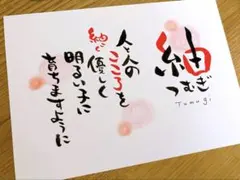 紬
つむぎ
Tumugi
人と人の
こころを
紬ぐ優しく
明るい子に
育ちますように